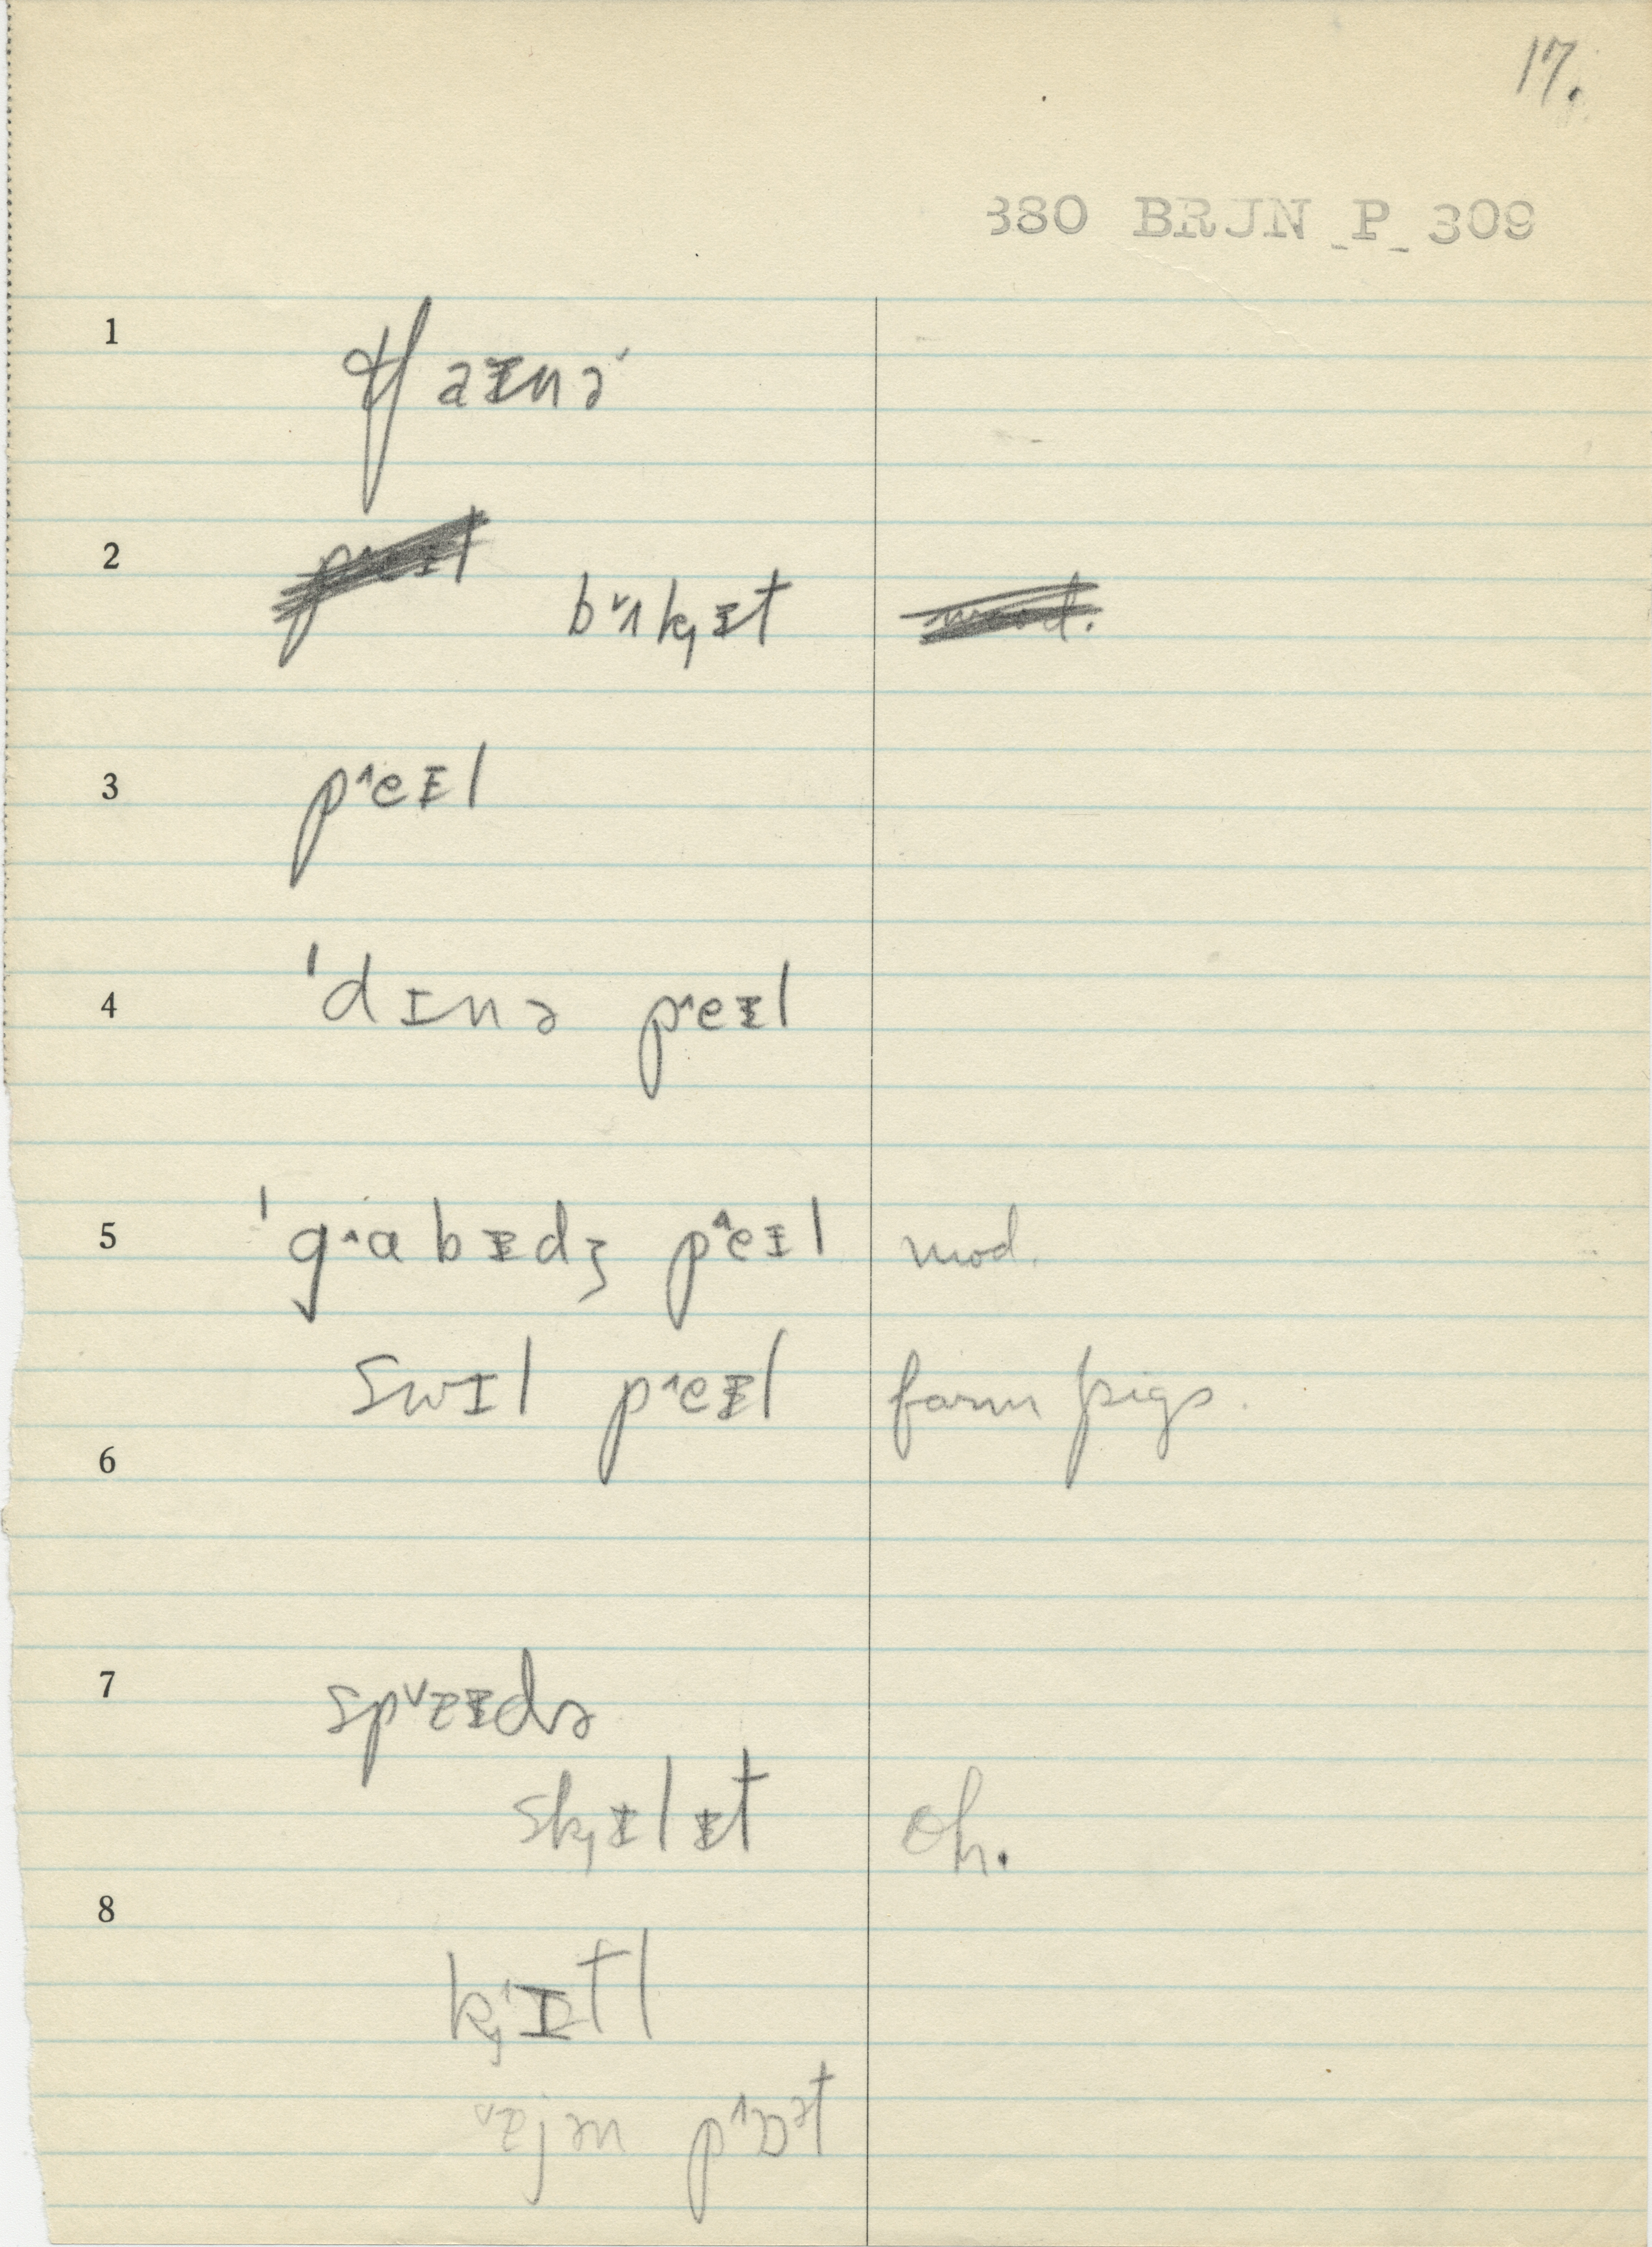 17.
380 BRJN_P_309
1 tʃaɪnə
2 bʌk̟ɪt
3 peɪl
4 ˈdɪnə peɪl
5 ˈgabɪdʒ peɪl mod.
swɪl peɪl farm pigs.
6
7 spɐɪdə
sk̟ɪlɪt oh.
8
k̟ɪtl
ɐjən pɒət